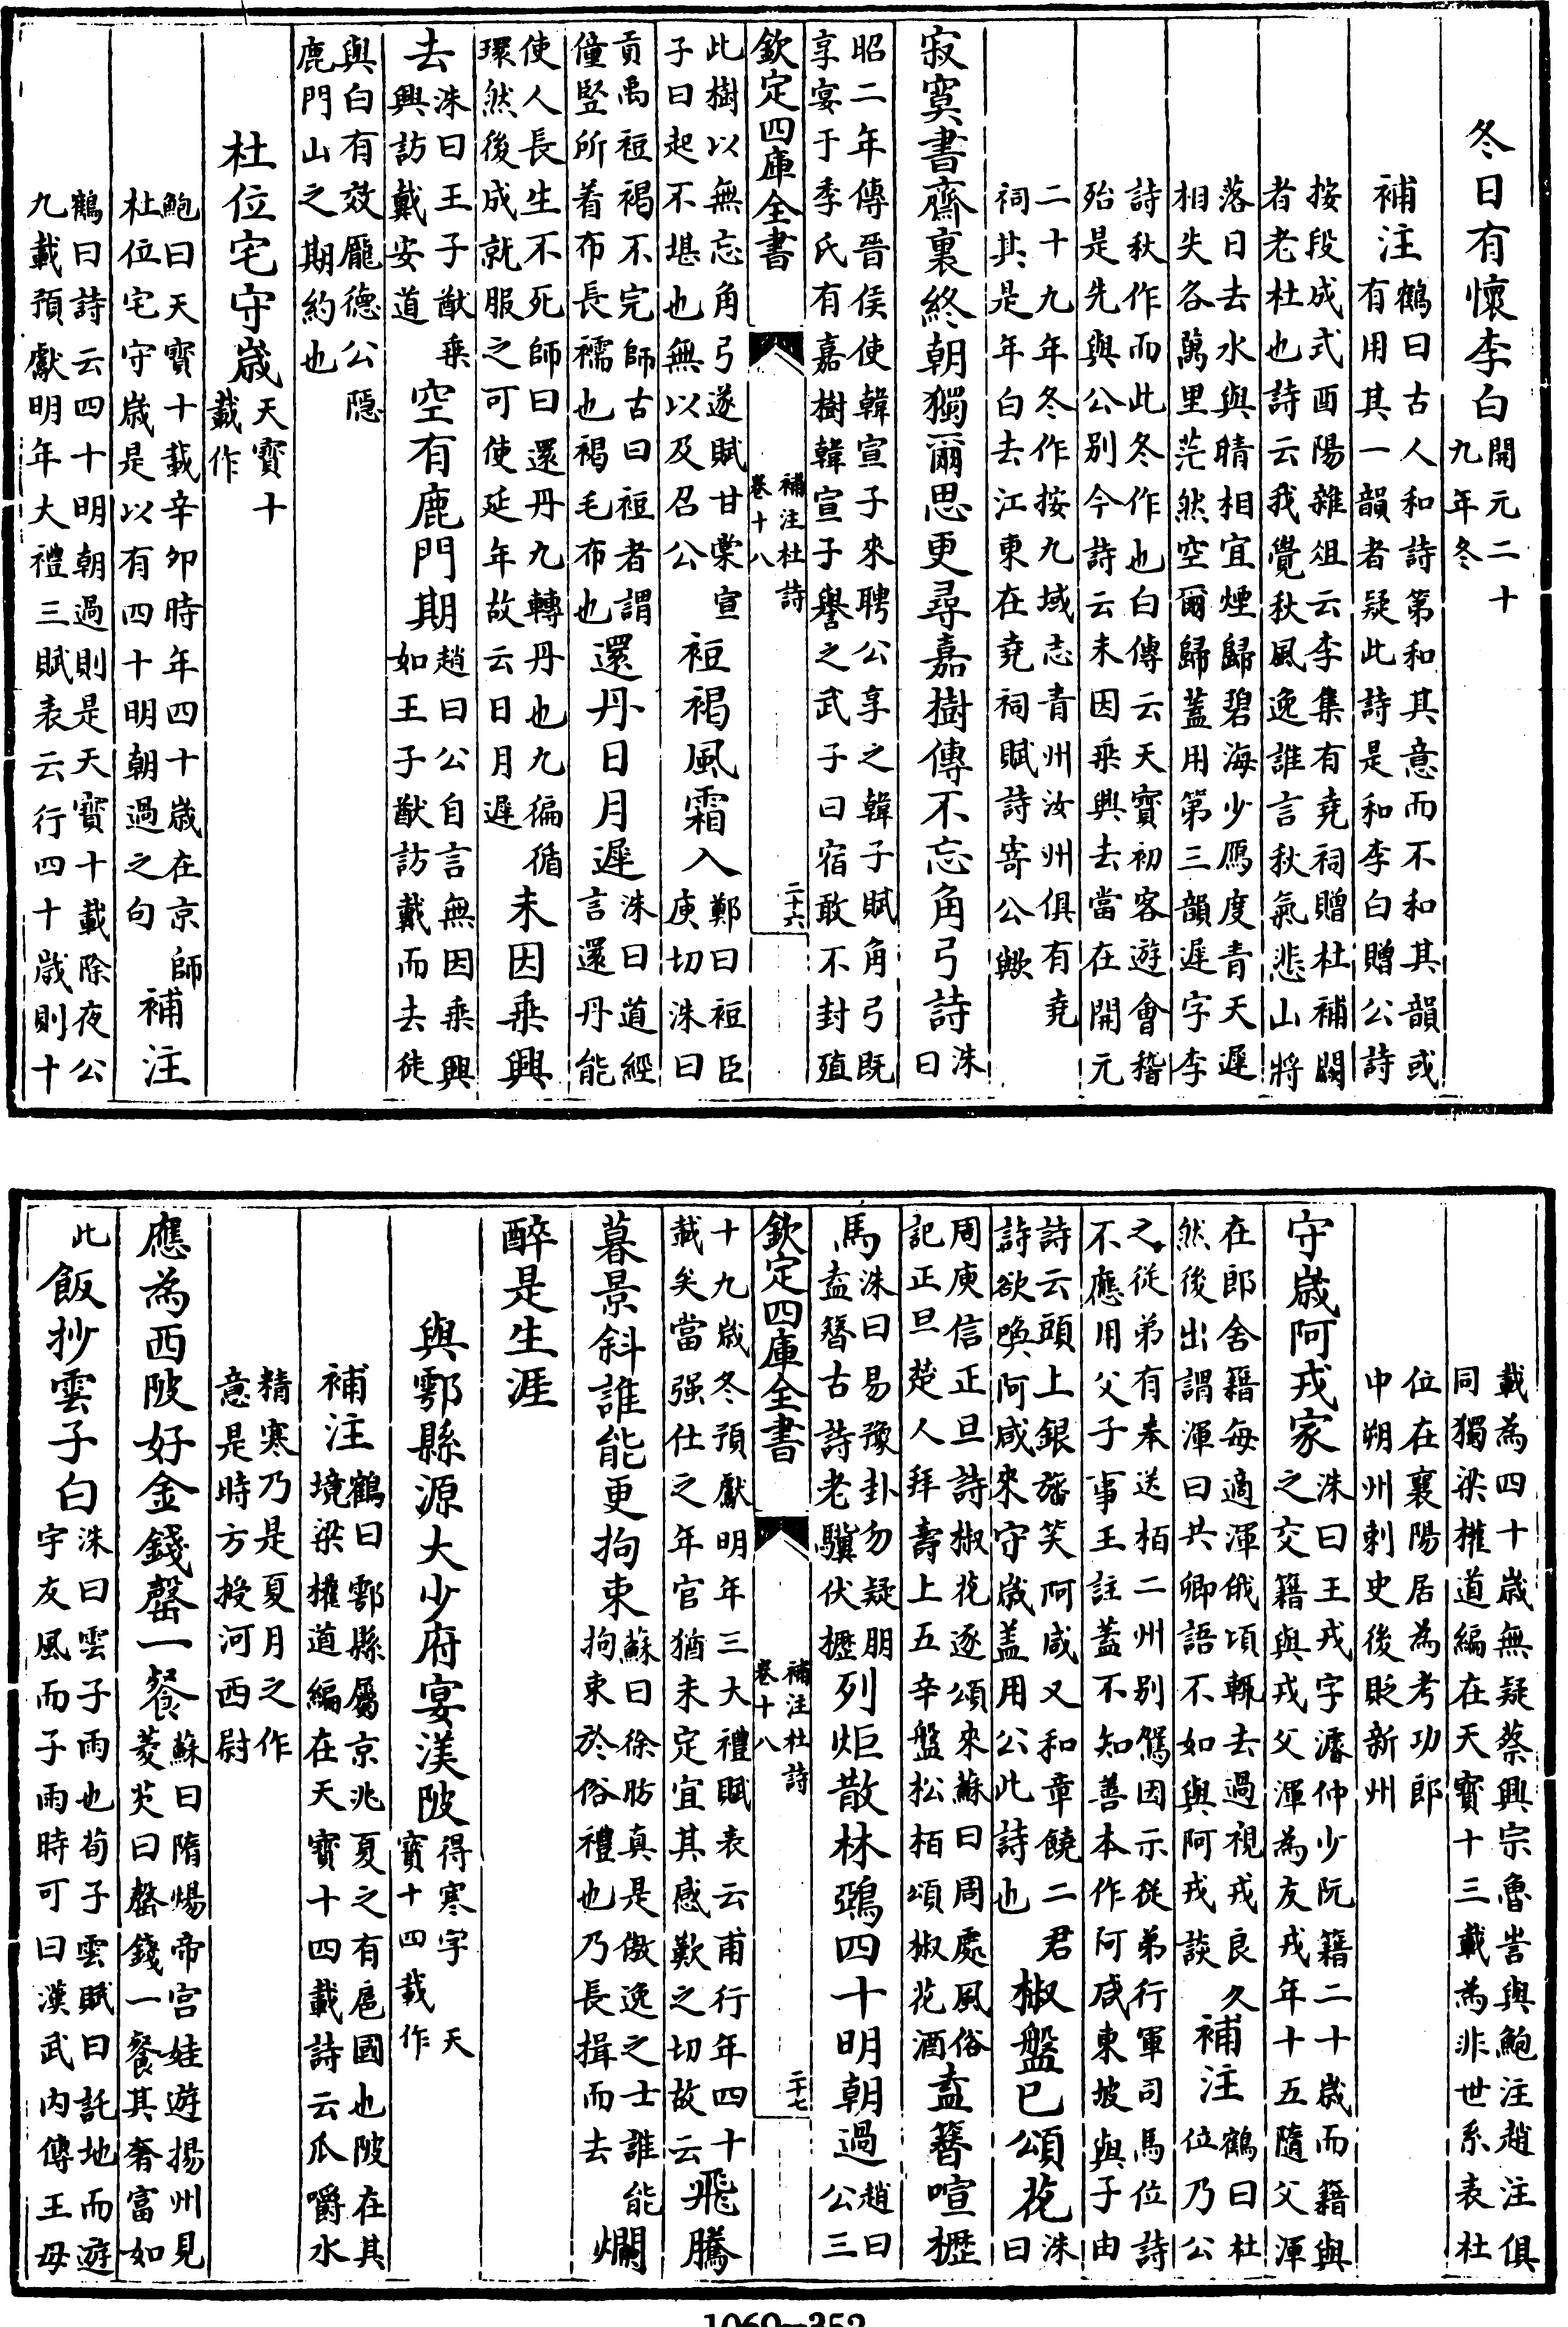 冬日有懷李白開元二十九年冬
補注鶴曰古人和詩第和其意而不和其韻或有用其一韻者疑此詩是和李白贈公詩
按段成式酉陽雜俎云李集有堯祠贈杜補闕者老杜也詩云我覺秋風逸誰言秋氣悲山將
落日去水與晴相宜煙歸碧海少鴈度青天遲相失各萬里茫然空爾歸蓋用第三韻遲字李
詩秋作而此冬作也白傳云天寶初客遊會稽殆是先與公别今詩云未因乗興去當在開元
二十九年冬作按九域志青州汝州俱有堯祠其是年白去江東在堯祠賦詩寄公歟
寂寞書齋裏終朝獨爾思更尋嘉樹傳不忘角弓詩洙曰
昭二年傳晉侯使韓宣子來聘公享之韓子賦角弓既享宴于季氏有嘉樹韓宣子譽之武子曰宿敢不封殖
欽定四庫全書 補注杜詩 卷十八 二十六
此樹以無忘角弓遂賦甘棠宣子曰起不堪也無以及召公裋褐風霜入鄭曰裋臣庾切洙曰
貢禹裋褐不完師古曰裋者謂僮豎所着布長襦也褐毛布也還丹日月遲洙曰道經言還丹能
使人長生不死師曰還丹九轉丹也九徧循環然後成就服之可使延年故云日月遲未因乗興
去洙曰王子猷乗興訪戴安道空有鹿門期趙曰公自言無因乗興如王子猷訪戴而去徒
與白有效龐德公隱鹿門山之期約也
杜位宅守歲天寶十載作
鮑曰天寶十載辛卯時年四十歲在京師杜位宅守歲是以有四十明朝過之句補注
鶴曰詩云四十明朝過則是天寶十載除夜公九載預獻明年大禮三賦表云行四十歲則十
載為四十歲無疑蔡興宗魯訔與鮑注趙注俱同獨梁權道編在天寶十三載為非世系表杜
位在襄陽居為考功郎中朔州刺史後貶新州
守歲阿戎家洙曰王戎字濬仲少阮籍二十歲而籍與之交籍與戎父渾為友戎年十五隨父渾
在郎舍籍每適渾俄頃輒去過視戎良久然後出謂渾曰共卿語不如與阿戎談補注鶴曰杜位乃公
之從弟有奉送栢二州别駕因示從弟行軍司馬位詩不應用父子事王註蓋不知善本作阿咸東坡與子由
詩云頭上銀旛笑阿咸又和章饒二君詩欲喚阿咸來守歲蓋用公此詩也椒盤已頌花洙曰
周庾信正旦詩椒花逐頌來蘇曰周處風俗記正旦楚人拜壽上五辛盤松栢頌椒花酒盍簪喧櫪
馬洙曰易豫卦勿疑朋盍簪古詩老驥伏櫪列炬散林鵶四十明朝過趙曰公三
欽定四庫全書 補注杜詩 卷十八 二十七
十九歲冬預獻明年三大禮賦表云甫行年四十載矣當强仕之年官猶未定宜其感歎之切故云飛騰
暮景斜誰能更拘束蘇曰徐肪真是傲逸之士誰能拘束於俗禮也乃長揖而去爛
醉是生涯
與鄠縣源大少府宴渼陂得寒字天寶十四載作
補注鶴曰鄠縣屬京兆夏之有扈國也陂在其境梁權道編在天寶十四載詩云瓜嚼水
精寒乃是夏月之作意是時方授河西尉
應為西陂好金錢罄一餐蘇曰隋煬帝宫娃遊揚州見菱芡曰罄錢一餐其奢富如
此飯抄雲子白洙曰雲子雨也荀子雲賦曰託地而遊宇友風而子雨時可曰漢武內傳王母
1069—352